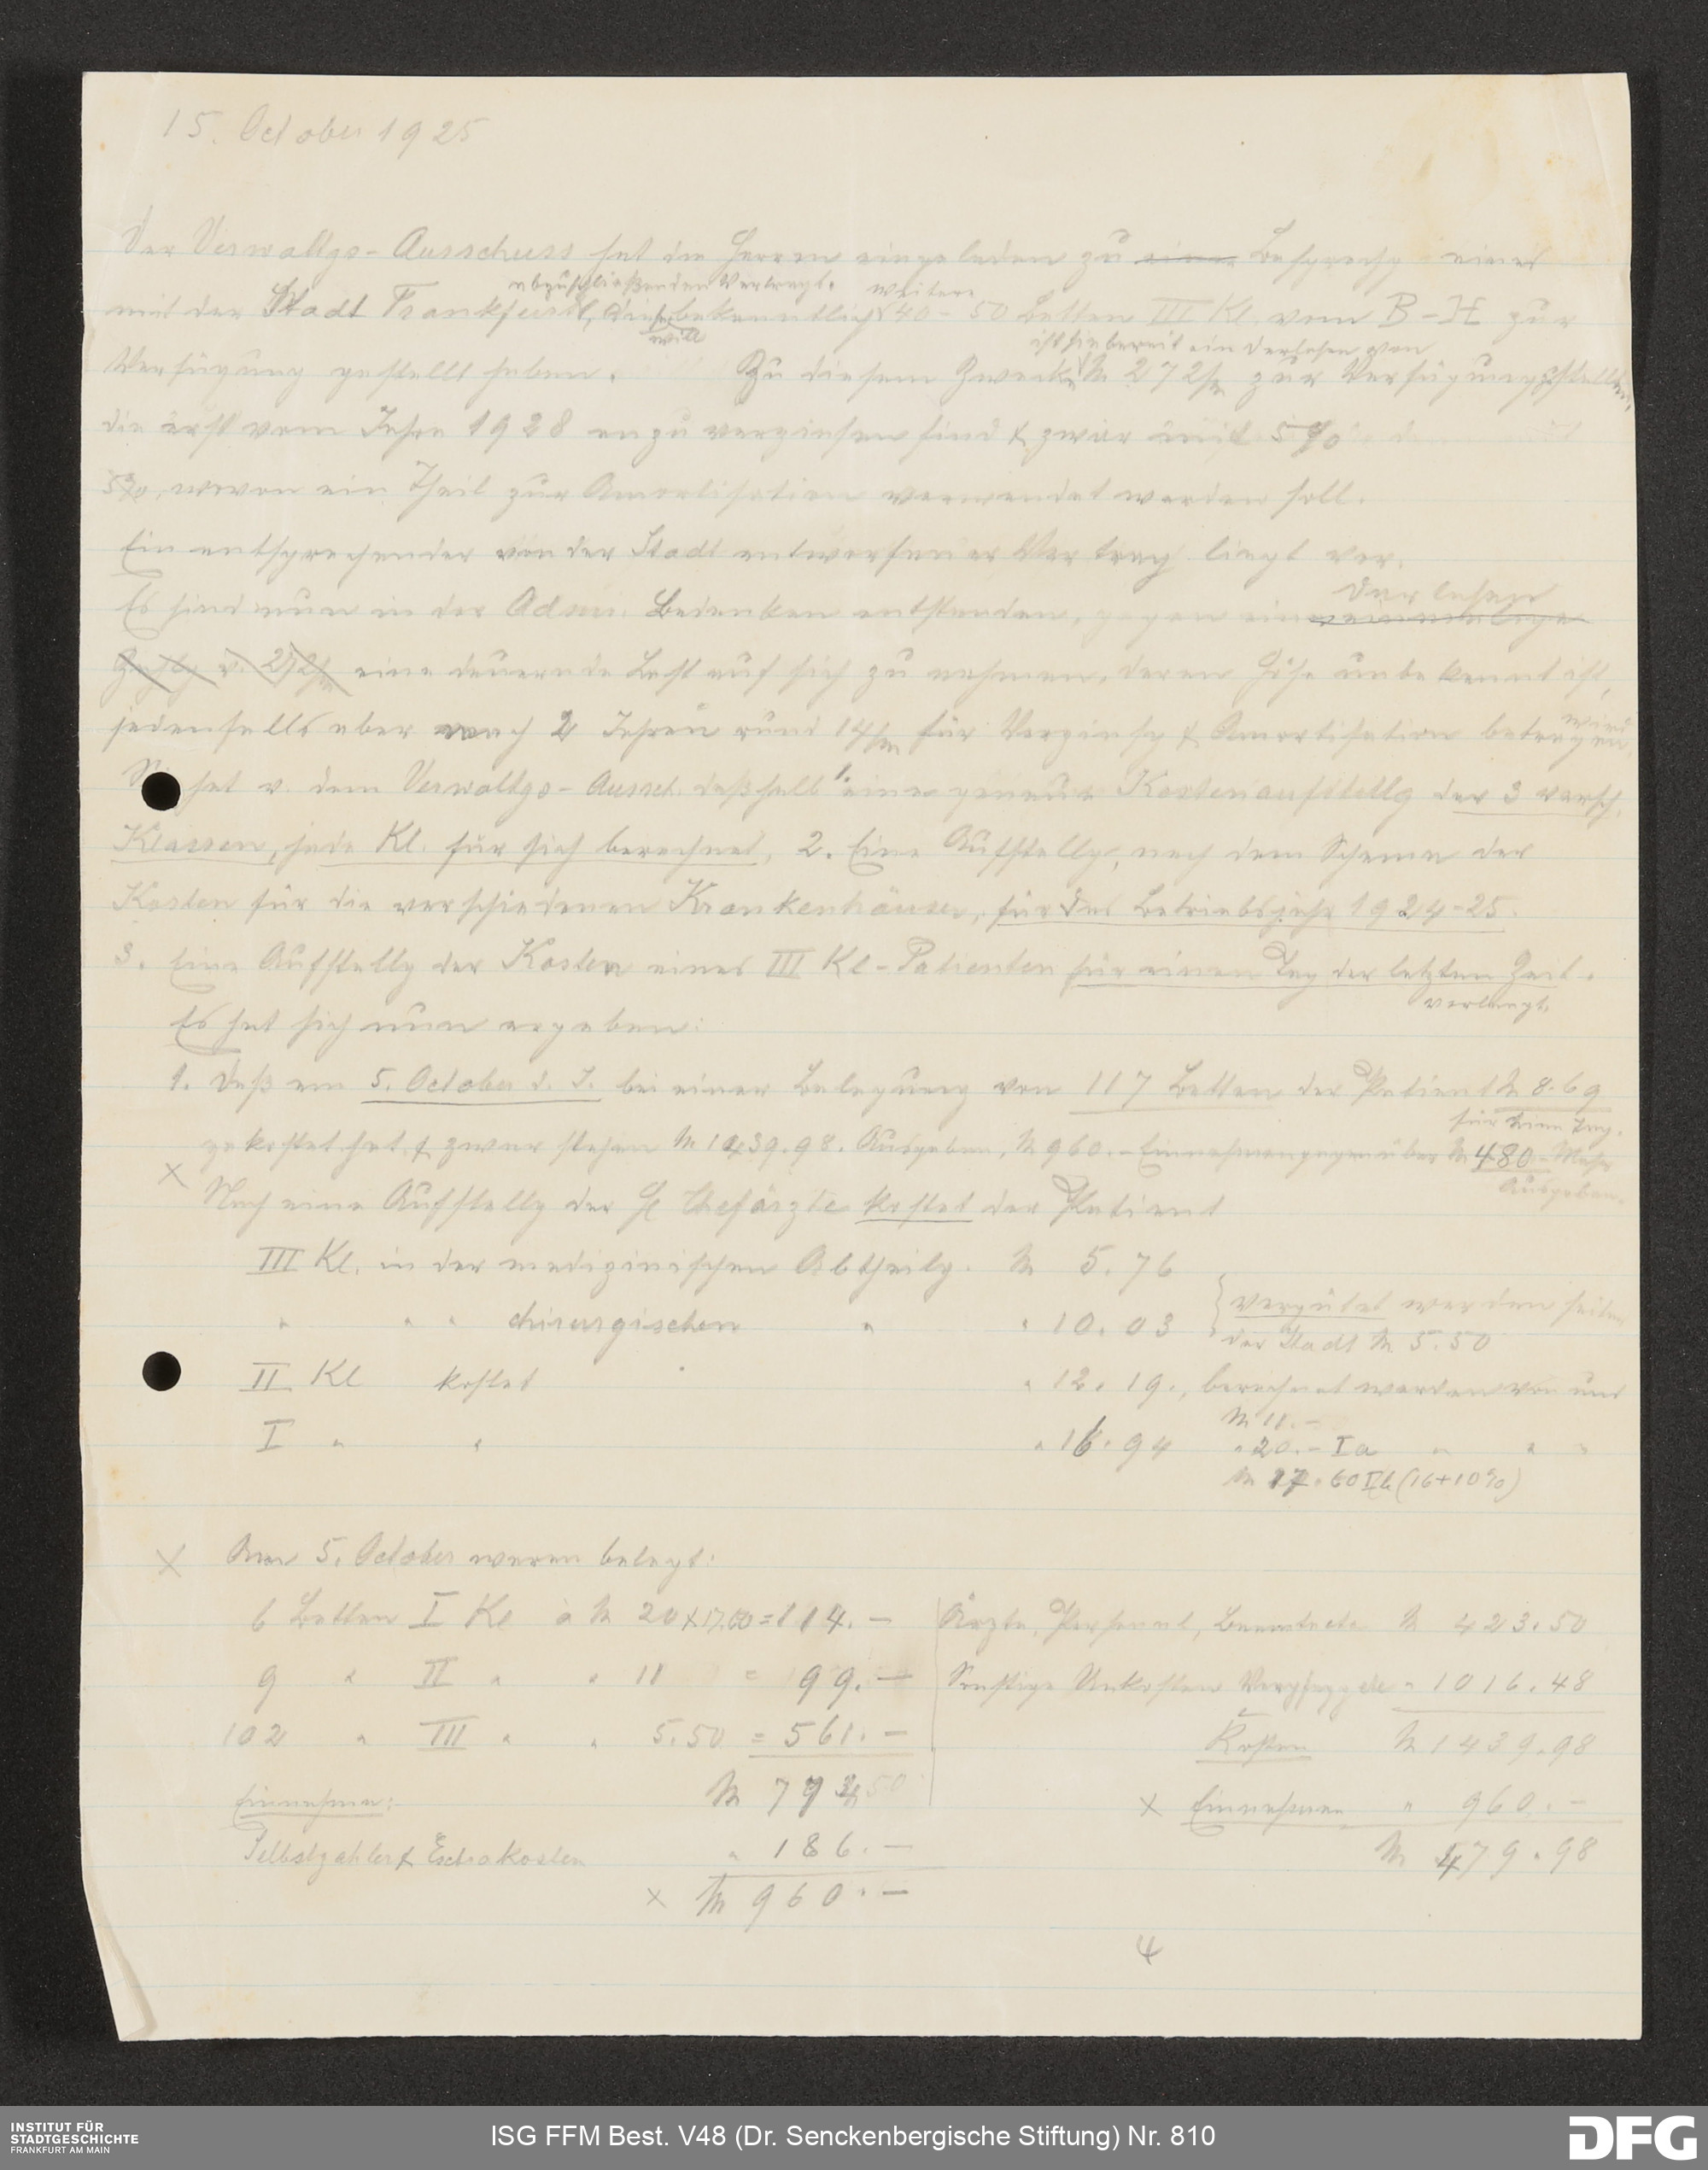 15. October 1925
Der Verwaltgs-Ausschuss hat die Herren eingeladen zu einer Besprechg eines
abzuschließenden Vertrags. weitere
mit der Stadt Frankfurt, die bekanntlich 40-50 Betten III Kl. vom B-H zur
will
ist sie bereit ein Darlehen von
Verfügung gestellt haben. Zu diesem Zweck M 272/m zur Verfügung stellen,
die erst vom Jahre 1928 an zu verzinsen sind & zwar mit 5%
5%, wovon ein Theil zur Amortisation verwendet werden soll.
Ein entsprechender von der Stadt entworfener Vertrag liegt vor.
Darlehen
Es sind nun in der Admi. Bedenken entstanden, gegen ein einmalige
Zahlg v. 272/m eine dauernde Last auf sich zu nehmen, deren Höhe unbekannt ist,
wird
jedenfalls aber nach 2 Jahren rund 14/m für Verzinsg & Amortisation betragen
Sie hat v. dem Verwaltgs-Aussch. deßhalb 1. eine genaue Kostenaufstellg der 3 versch.
Klassen, jede Kl. für sich berechnet, 2. Eine Aufstellg, nach dem Schema der
Kosten für die verschiedenen Krankenhäuser, für das Betriebsjahr 1924-25.
3. Eine Aufstellg der Kosten eines III Kl-Patienten für einen Tag der letzten Zeit.
verlangt.
Es hat sich nun ergeben:
1. Daß am 5. October d. J. bei einer Belegung von 117 Betten der Patient M 8.69
für einen Tag.
gekostet hat & zwar stehen M 1439.98. Ausgaben, M 960.- Einnahmen gegenüber M 480.- Mehr
Ausgaben.
x Nach eine Aufstellg der H Chefärzte kostet der Patient
III Kl. in der medizinischen Abtheilg. M 5.76
" " " chirurgischen " " 10.03 } vergütet werden seitens
der Stadt M 5.50
II Kl kostet " 12.19., berechnet werden von uns
M 11.-
I " " " 16.94 " 20.- Ia " " "
M 17.60 Ib (16+10%)
x Am 5. October waren belegt:
6 Betten I Kl à M 20 & 17.60 = 114.-
9 " II " " 11 = 99.-
102 " III " " 5.50 = 561.-
Einnahme: M 774
Selbstzahler & Extrakosten " 186.-
x M 960.-
Ärzte, Personal, Beamte etc M 423.50
Sonstige Unkosten Verpflegg etc " 1016.48
Kosten M 1439.98
x Einnahmen " 960.-
M 479.98
4
INSTITUT FÜR
STADTGESCHICHTE
FRANKFURT AM MAIN
ISG FFM Best. V48 (Dr. Senckenbergische Stiftung) Nr. 810
DFG